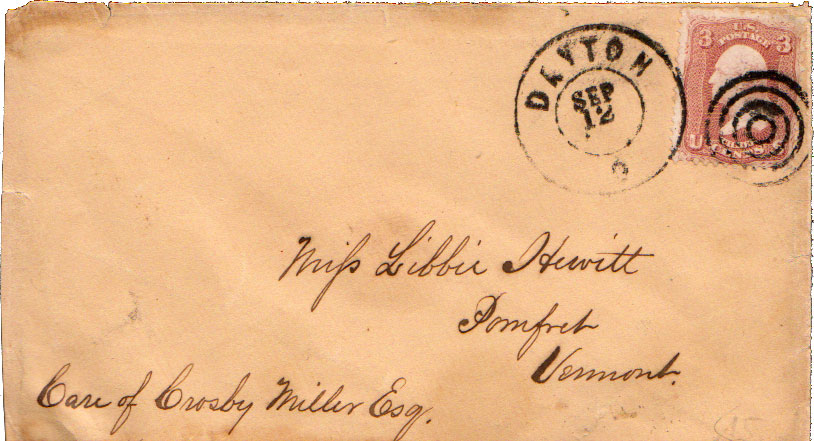 DAYTON
SEP
12
O
3 U.S. 3
POSTAGE
U S
Miſs Libbie Hewitt
Pomfret
Vermont.
Care of Crosby Miller Esq.